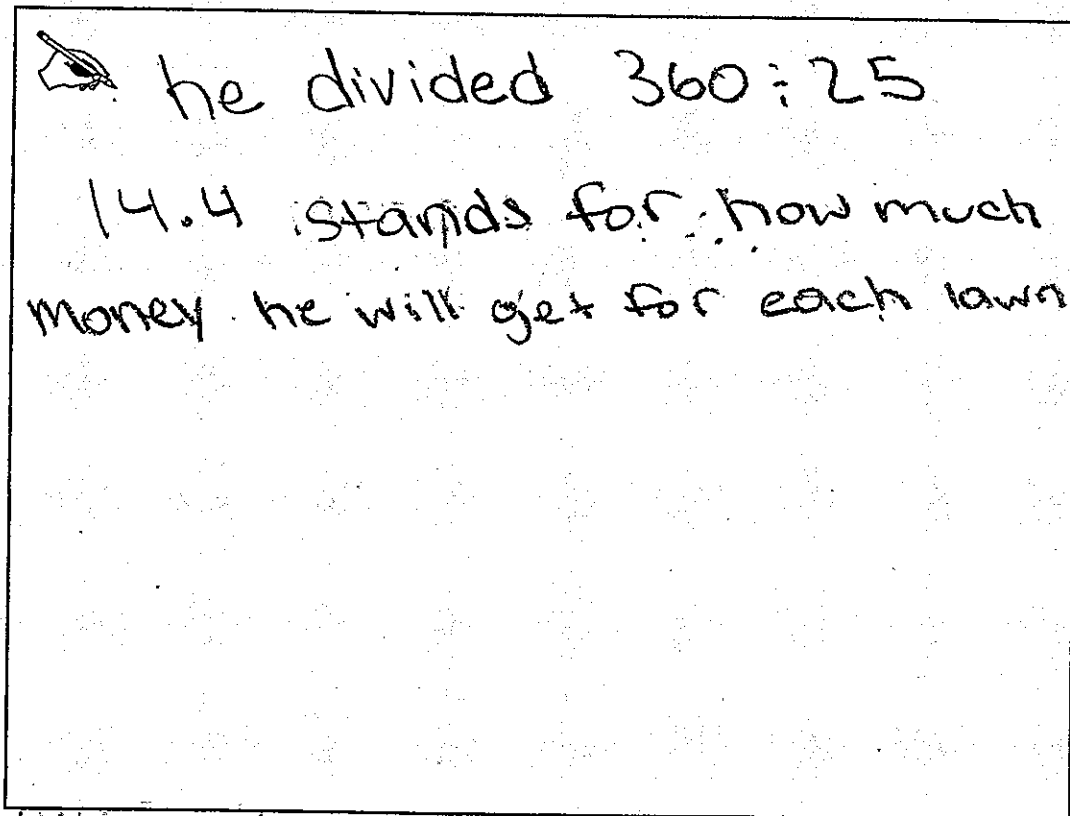 he divided 360÷25
14.4 stands for how much
money he will get for each lawn